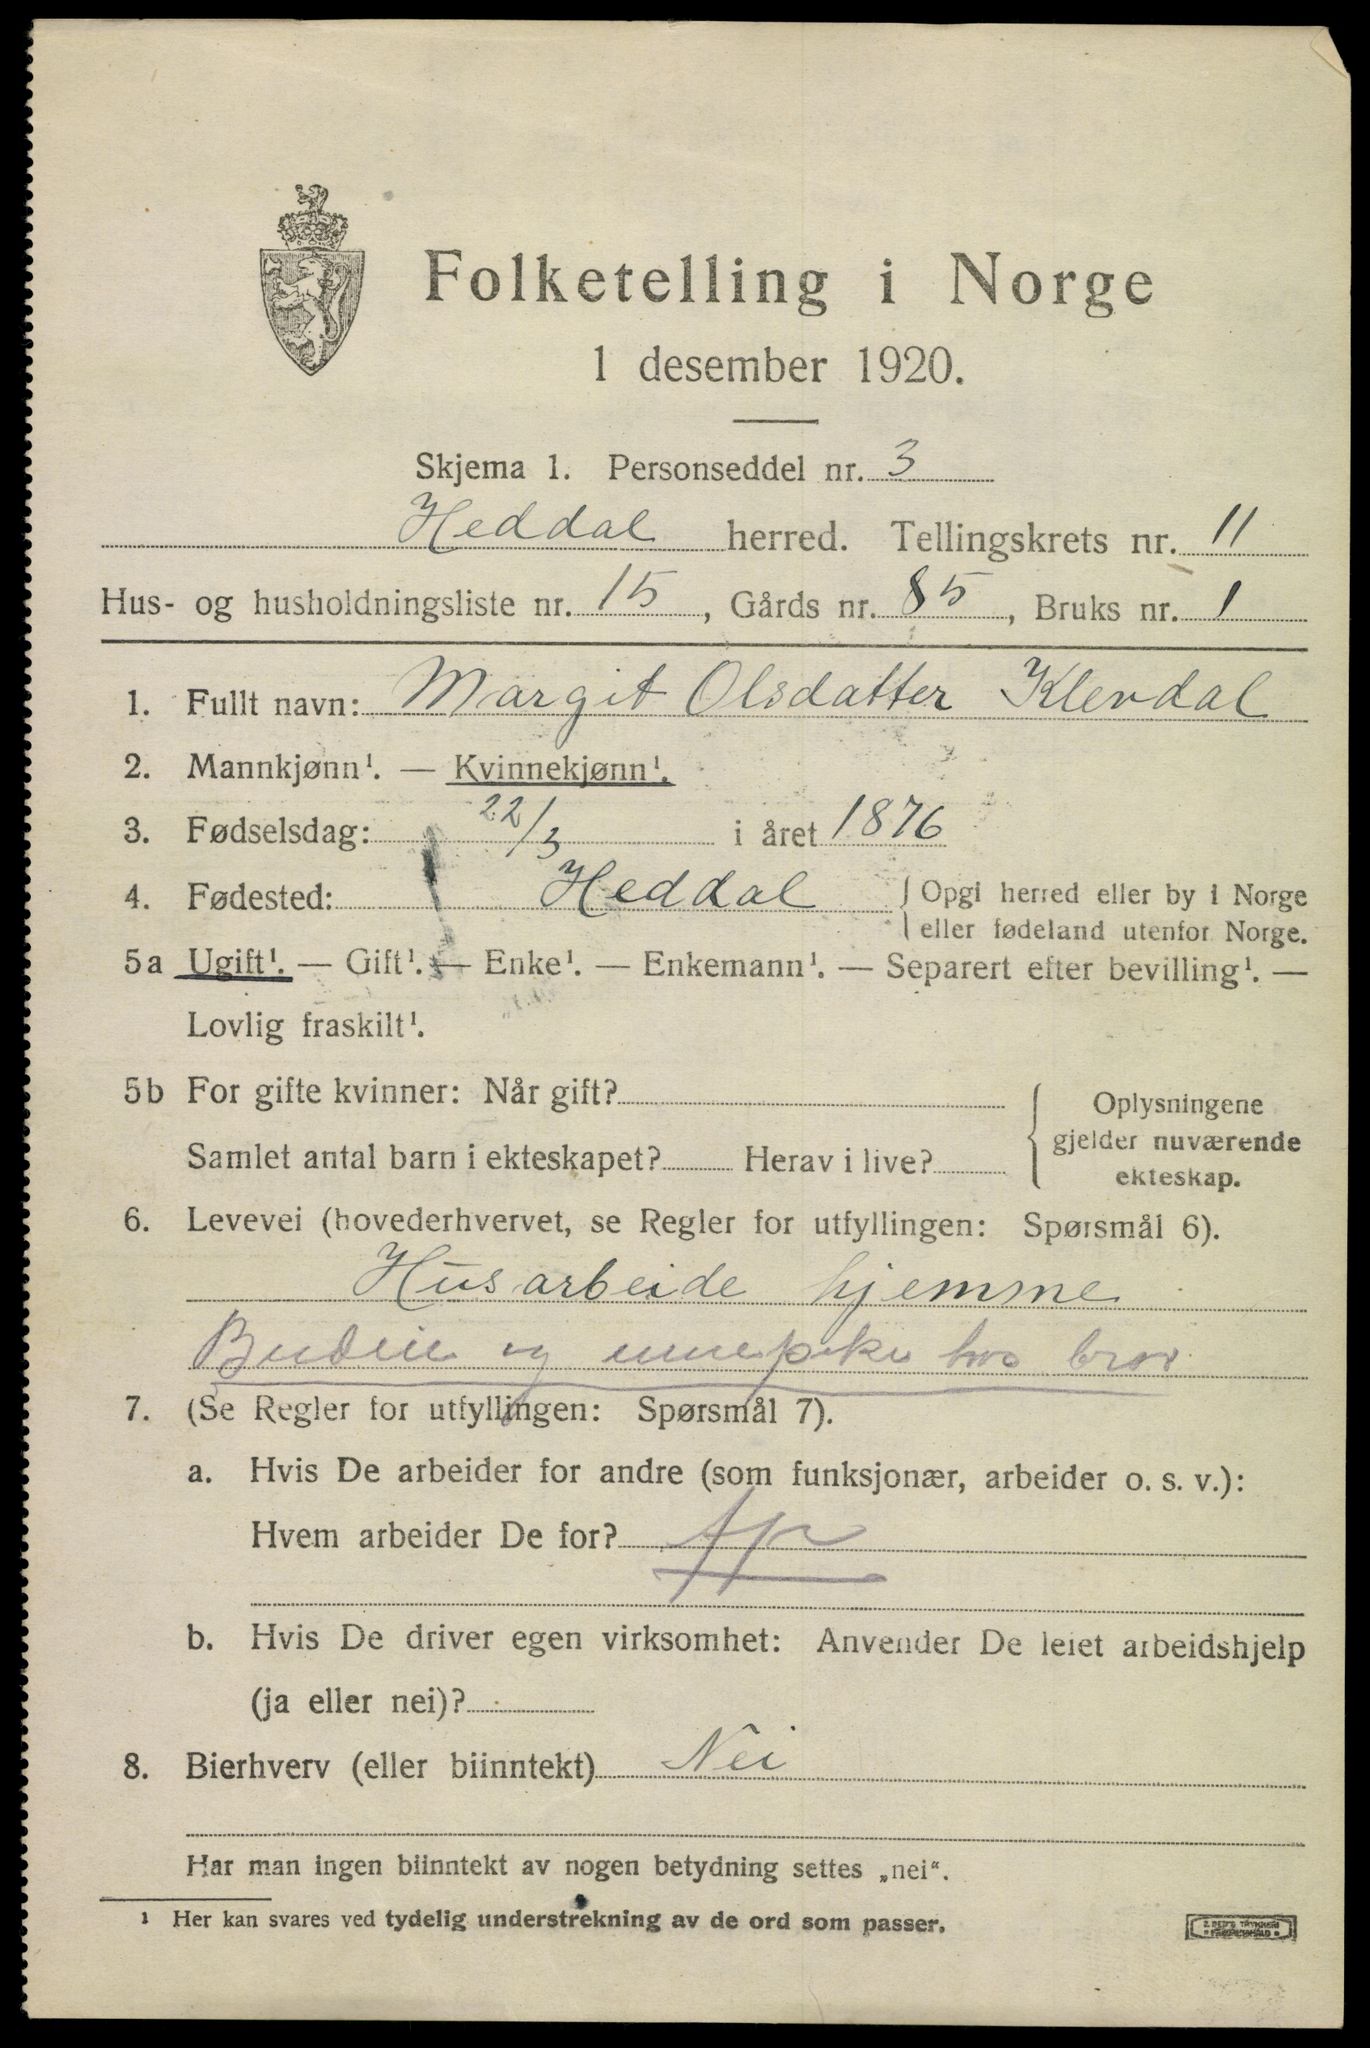 Folketelling i Norge
1 desember 1920.
Skjema 1. Personseddel nr. 3
Heddal herred. Tellingskrets nr. 11
Hus- og husholdningsliste nr. 15, Gårds nr. 85, Bruks nr. 1
1. Fullt navn: Margit Olsdatter Klevdal
2. Mannkjønn¹. — Kvinnekjønn¹.
3. Fødselsdag: 22/3 i året 1876
4. Fødested: Heddal { Opgi herred eller by i Norge
eller fødeland utenfor Norge.
5a Ugift¹. — Gift¹. — Enke¹. — Enkemann¹. — Separert efter bevilling¹. —
Lovlig fraskilt¹.
5b For gifte kvinner: Når gift?
Samlet antal barn i ekteskapet? Herav i live?
{ Oplysningene
gjelder nuværende
ekteskap.
6. Levevei (hovederhvervet, se Regler for utfyllingen: Spørsmål 6).
Husarbeide hjemme
Budeie og innepike hos bror
7. (Se Regler for utfyllingen: Spørsmål 7).
a. Hvis De arbeider for andre (som funksjonær, arbeider o. s. v.):
Hvem arbeider De for?
b. Hvis De driver egen virksomhet: Anvender De leiet arbeidshjelp
(ja eller nei)?
8. Bierhverv (eller biinntekt) Nei
Har man ingen biinntekt av nogen betydning settes „nei“.
¹ Her kan svares ved tydelig understrekning av de ord som passer.